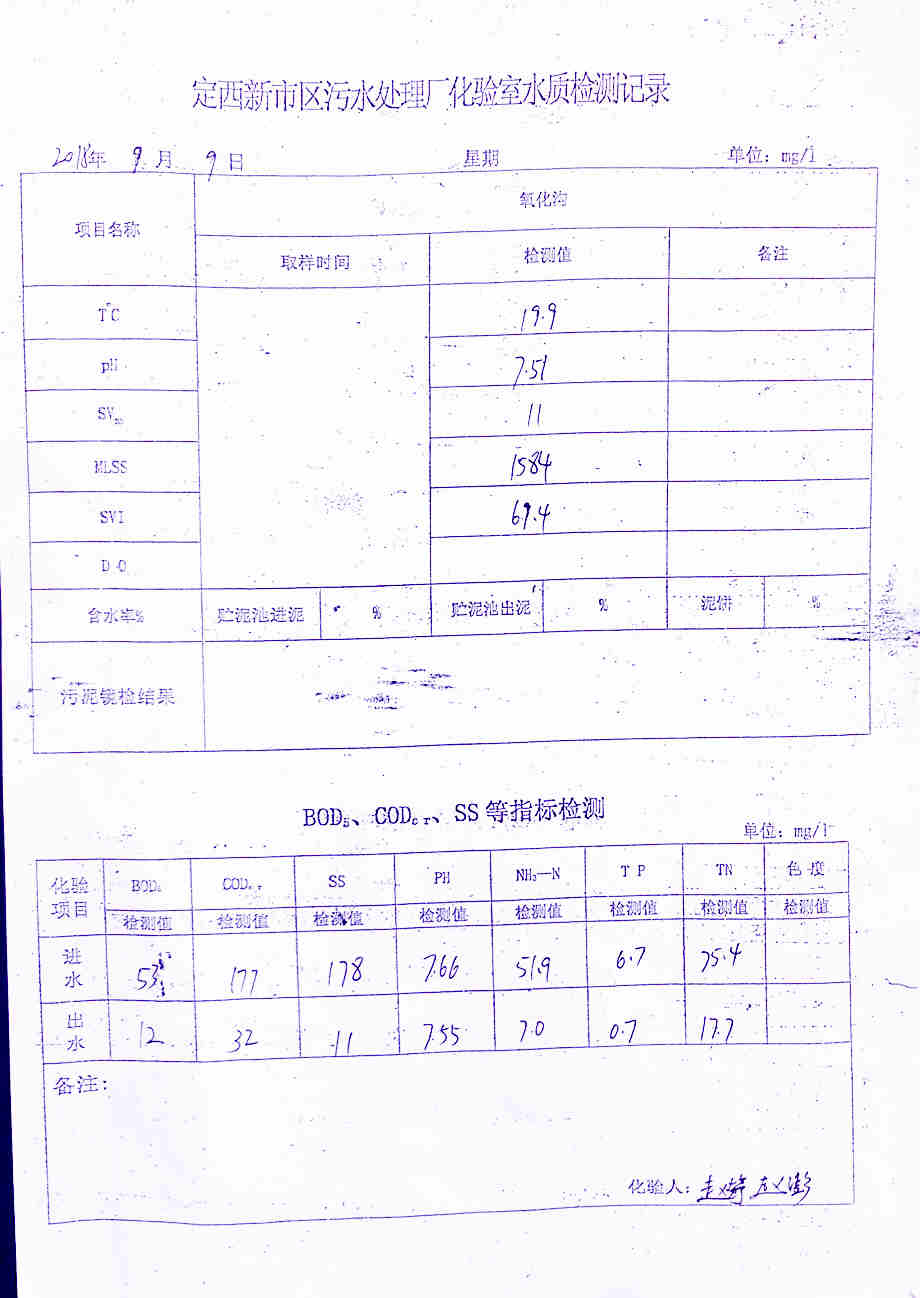 定西新市区污水处理厂化验室水质检测记录
2018年 9月 9日 星期 单位：mg/l
项目名称 氧化沟
取样时间 检测值 备注
T℃ 19.9
pH 7.51
SV₃₀ 11
MLSS 1584
SVI 69.4
D O
含水率% 贮泥池进泥 % 贮泥池出泥 % 泥饼 %
污泥镜检结果
BOD₅、CODcr、SS等指标检测
单位：mg/l
化验项目 BOD₅ CODcr SS PH NH₃—N T P TN 色 度
检测值 检测值 检测值 检测值 检测值 检测值 检测值 检测值
进水 53 177 178 7.66 51.9 6.7 75.4
出水 12 32 11 7.55 7.0 0.7 17.7
备注：
化验人：